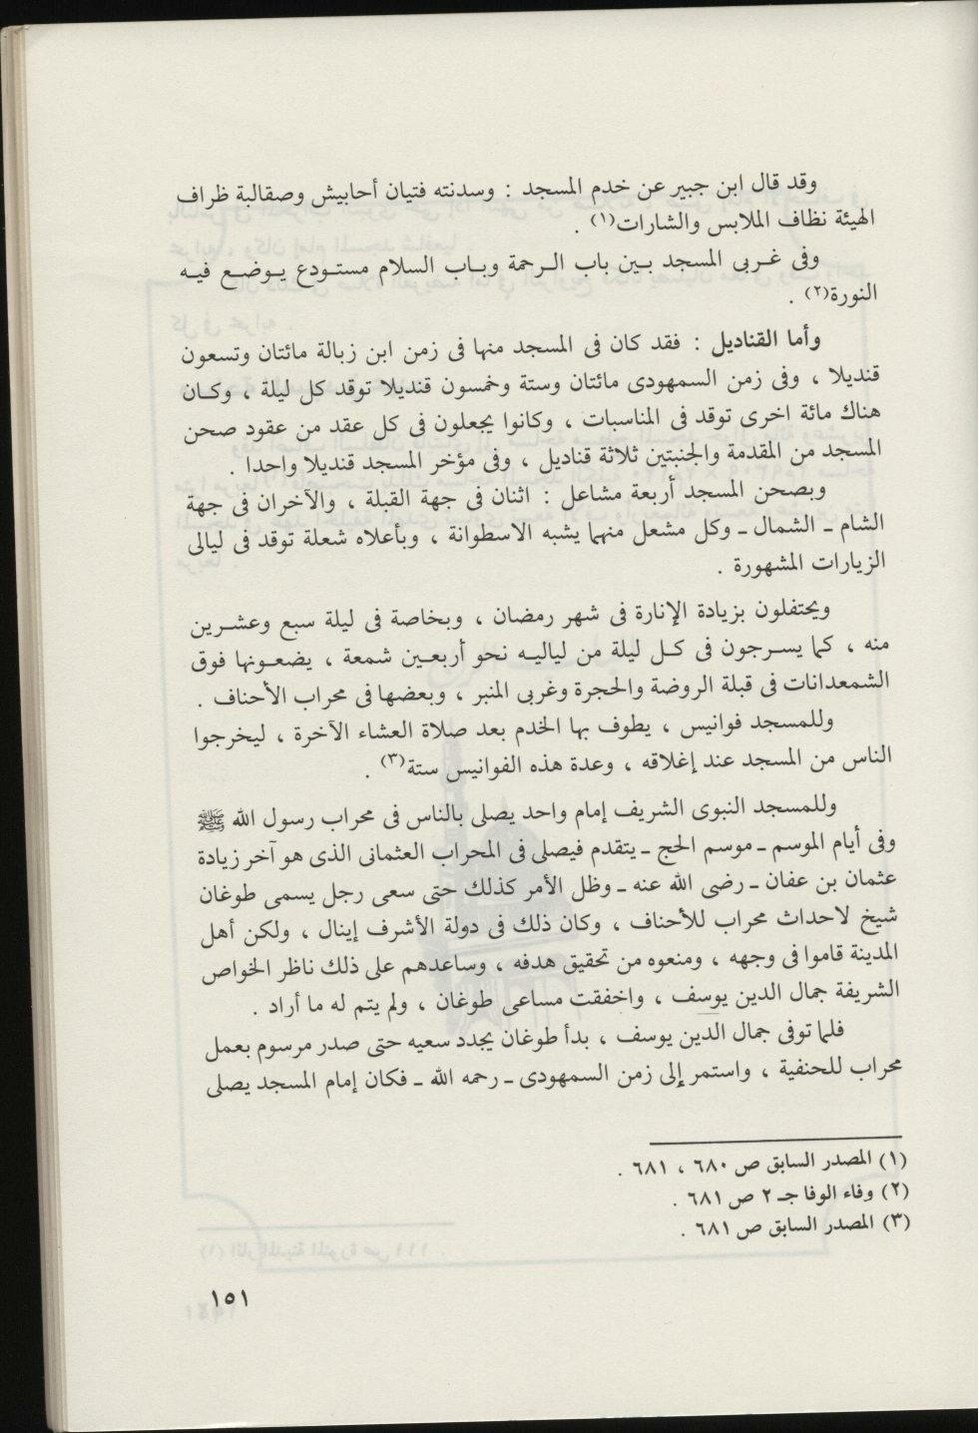 وقد قال ابن جبير عن خدم المسجد : وسدنته فتيان أحابيش وصقالبة ظراف
الهيئة نظاف الملابس والشارات(١) .
وفى غربى المسجد بين باب الرحمة وباب السلام مستودع يوضع فيه
النورة(٢) .
وأما القناديل : فقد كان فى المسجد منها فى زمن ابن زبالة مائتان وتسعون
قنديلا ، وفى زمن السمهودى مائتان وستة وخمسون قنديلا توقد كل ليلة ، وكان
هناك مائة اخرى توقد فى المناسبات ، وكانوا يجعلون فى كل عقد من عقود صحن
المسجد من المقدمة والجنبتين ثلاثة قناديل ، وفى مؤخر المسجد قنديلا واحدا .
وبصحن المسجد أربعة مشاعل : اثنان فى جهة القبلة ، والآخران فى جهة
الشام ـ الشمال ـ وكل مشعل منهما يشبه الاسطوانة ، وبأعلاه شعلة توقد فى ليالى
الزيارات المشهورة .
ويحتفلون بزيادة الإنارة فى شهر رمضان ، وبخاصة فى ليلة سبع وعشرين
منه ، كما يسرجون فى كل ليلة من لياليه نحو أربعين شمعة ، يضعونها فوق
الشمعدانات فى قبلة الروضة والحجرة وغربى المنبر ، وبعضها فى محراب الأحناف .
وللمسجد فوانيس ، يطوف بها الخدم بعد صلاة العشاء الآخرة ، ليخرجوا
الناس من المسجد عند إغلاقه ، وعدة هذه الفوانيس ستة(٣) .
وللمسجد النبوى الشريف إمام واحد يصلى بالناس فى محراب رسول الله ﷺ
وفى أيام الموسم ـ موسم الحج ـ يتقدم فيصلى فى المحراب العثمانى الذى هو آخر زيادة
عثمان بن عفان ـ رضى الله عنه ـ وظل الأمر كذلك حتى سعى رجل يسمى طوغان
شيخ لاحداث محراب للأحناف ، وكان ذلك فى دولة الأشرف إينال ، ولكن أهل
المدينة قاموا فى وجهه ، ومنعوه من تحقيق هدفه ، وساعدهم على ذلك ناظر الخواص
الشريفة جمال الدين يوسف ، واخفقت مساعى طوغان ، ولم يتم له ما أراد .
فلما توفى جمال الدين يوسف ، بدأ طوغان يجدد سعيه حتى صدر مرسوم بعمل
محراب للحنفية ، واستمر إلى زمن السمهودى ـ رحمه الله ـ فكان إمام المسجد يصلى
(١) المصدر السابق ص ٦٨٠ ، ٦٨١ .
(٢) وفاء الوفا جـ ٢ ص ٦٨١ .
(٣) المصدر السابق ص ٦٨١ .
١٥١